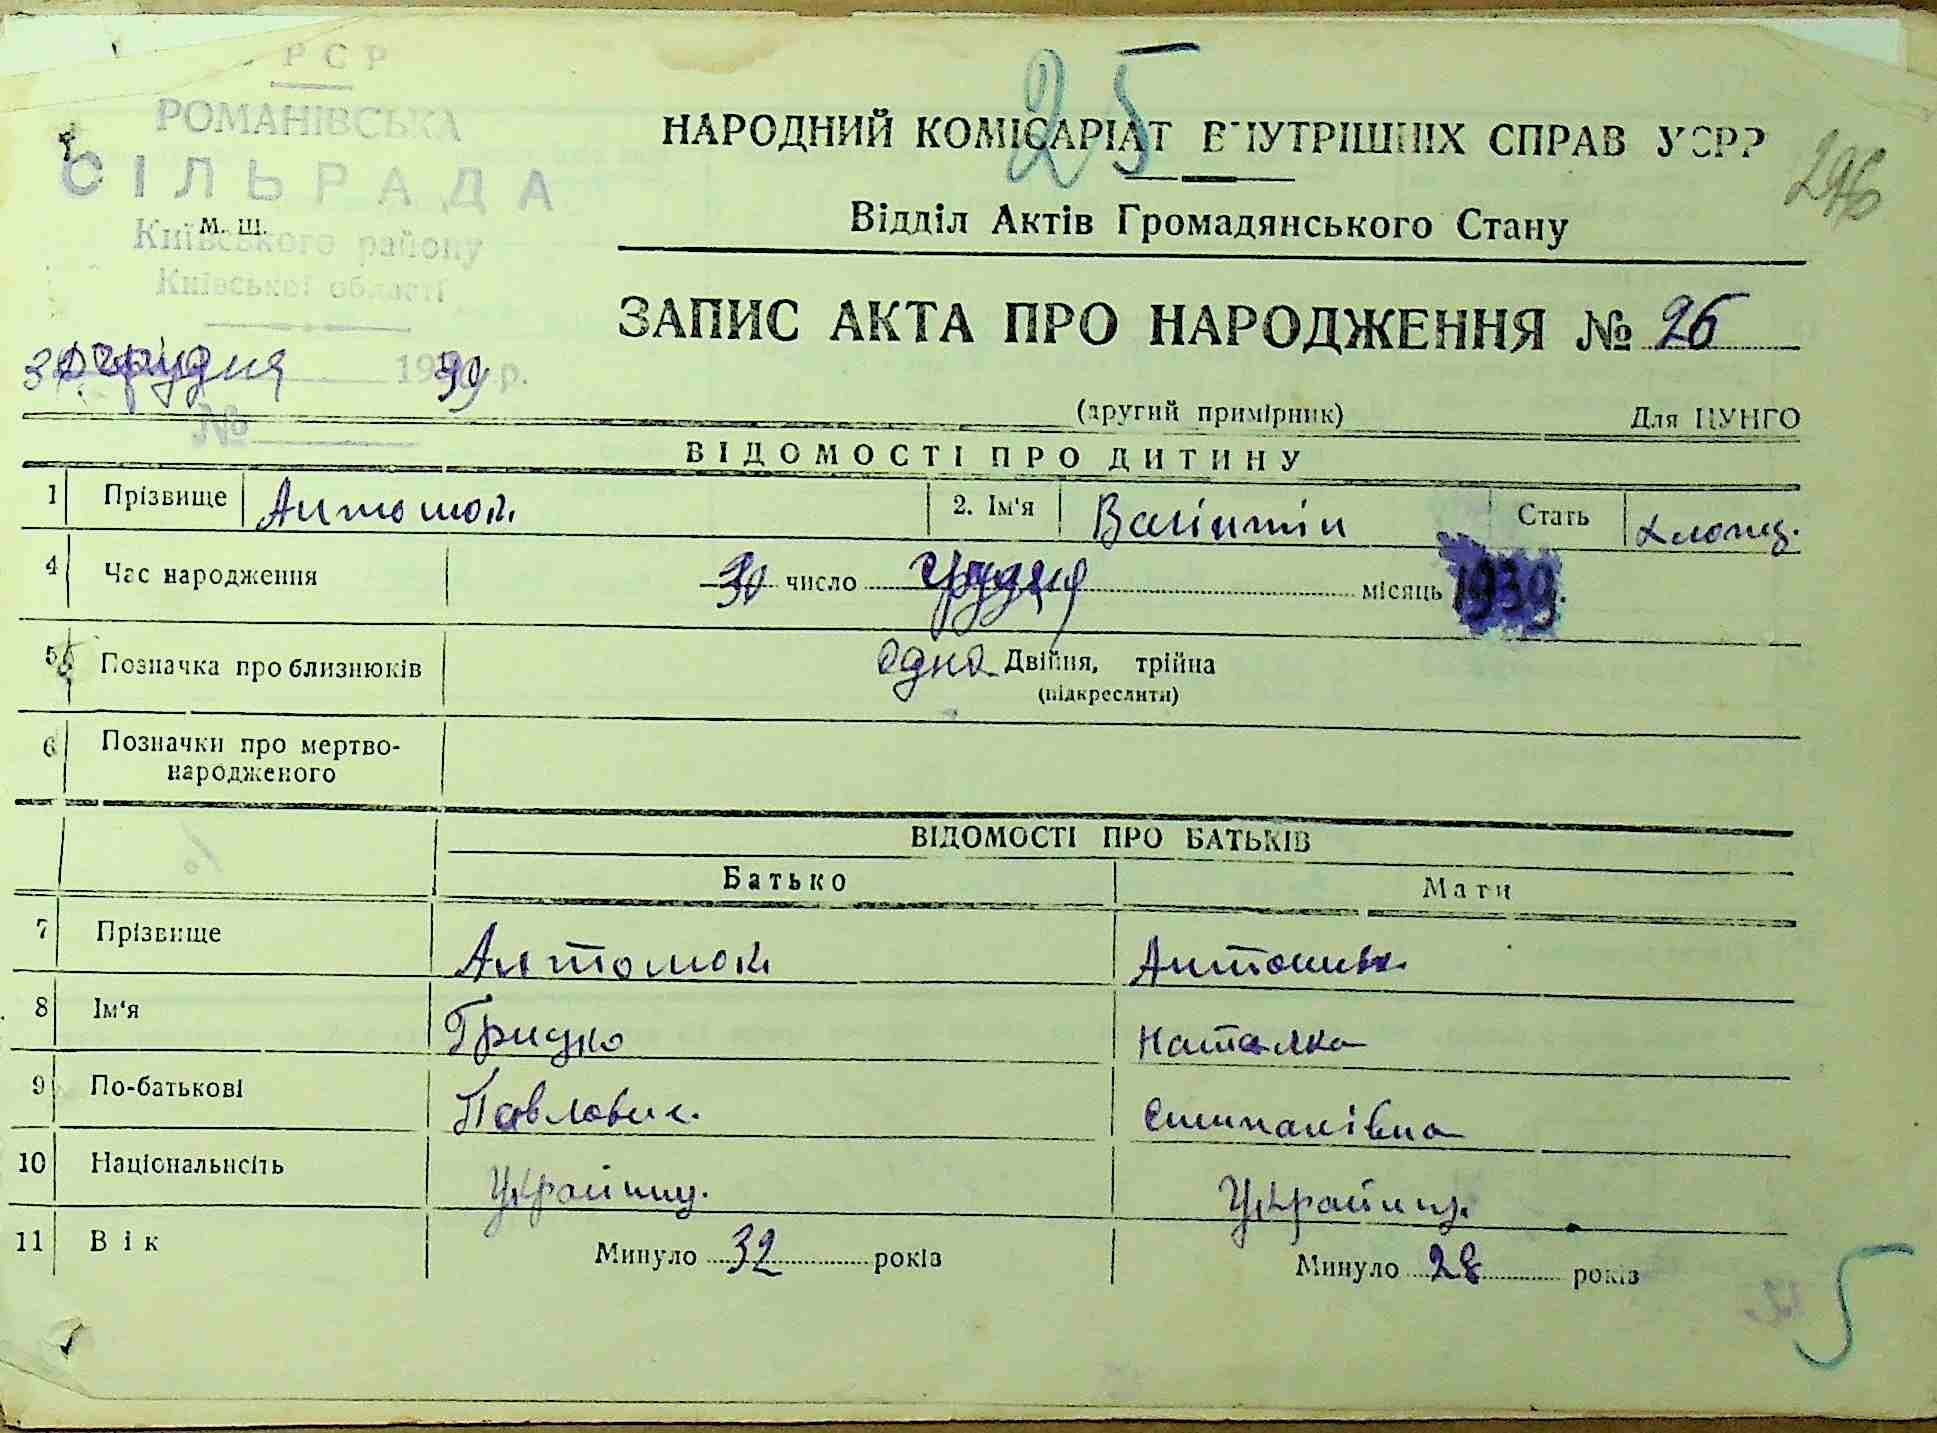 РСР
РОМАНІВСЬКА
СІЛЬРАДА
М. Ш.
Київського району
Київської області
30 грудня 1939 р.
№
25
НАРОДНИЙ КОМІСАРІАТ ВНУТРІШНІХ СПРАВ УСРР
296
Відділ Актів Громадянського Стану
ЗАПИС АКТА ПРО НАРОДЖЕННЯ № 26
(другий примірник) Для ЦУНГО
ВІДОМОСТІ ПРО ДИТИНУ
1 Прізвище 2. Ім'я Валінтін Стать хлопец.
4 Час народження 30 число грудня місяць 1939.
5 Позначка про близнюків одна Двійня, трійна
(підкреслити)
6 Позначки про мертво-
народженого
ВІДОМОСТІ ПРО БАТЬКІВ
Батько Мати
7 Прізвище
8 Ім'я Грицко Наталка
9 По-батькові Павлович. Степанівна
10 Національність Українец. Українц.
11 Вік Минуло 32 років Минуло 28 років
5